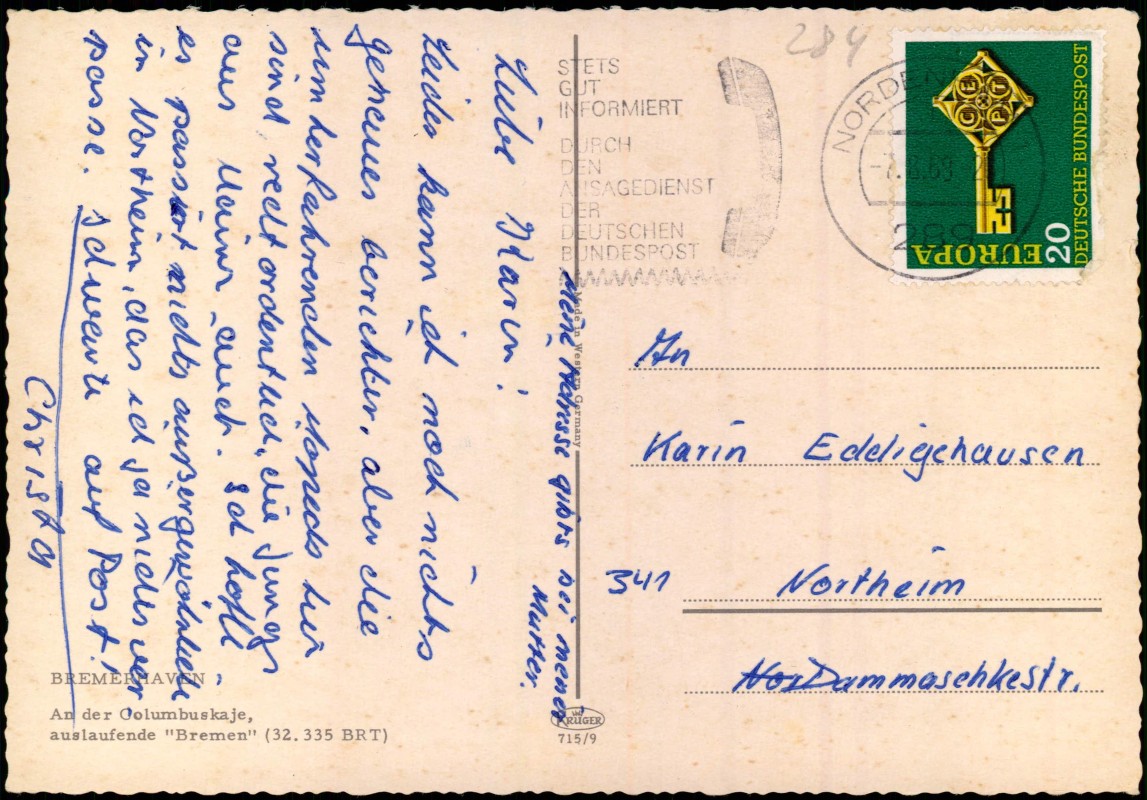 Liebe Karin!
Leider kann ich noch nichts
genaues berichten, aber die
umherfahrenden hier
sind recht ordentlich, die Jungs
aus Mainz auch. Ich hoffe
es passiert nichts außergewöhnliches
in Northeim, das ich ja nicht ver-
passe. Ich warte auf Post!
Christa
Meine Adresse gibts bei meiner
Mutter.
BREMERHAVEN
An der Columbuskaje,
auslaufende "Bremen" (32.335 BRT)
Made in Western Germany
KRÜGER
715/9
284
STETS
GUT
INFORMIERT
DURCH
DEN
ANSAGEDIENST
DER
DEUTSCHEN
BUNDESPOST
NORDEN
-7.8.69
CEPT
EUROPA
20
DEUTSCHE BUNDESPOST
An
Karin Eddigehausen
341 Northeim
Dammaschkestr.